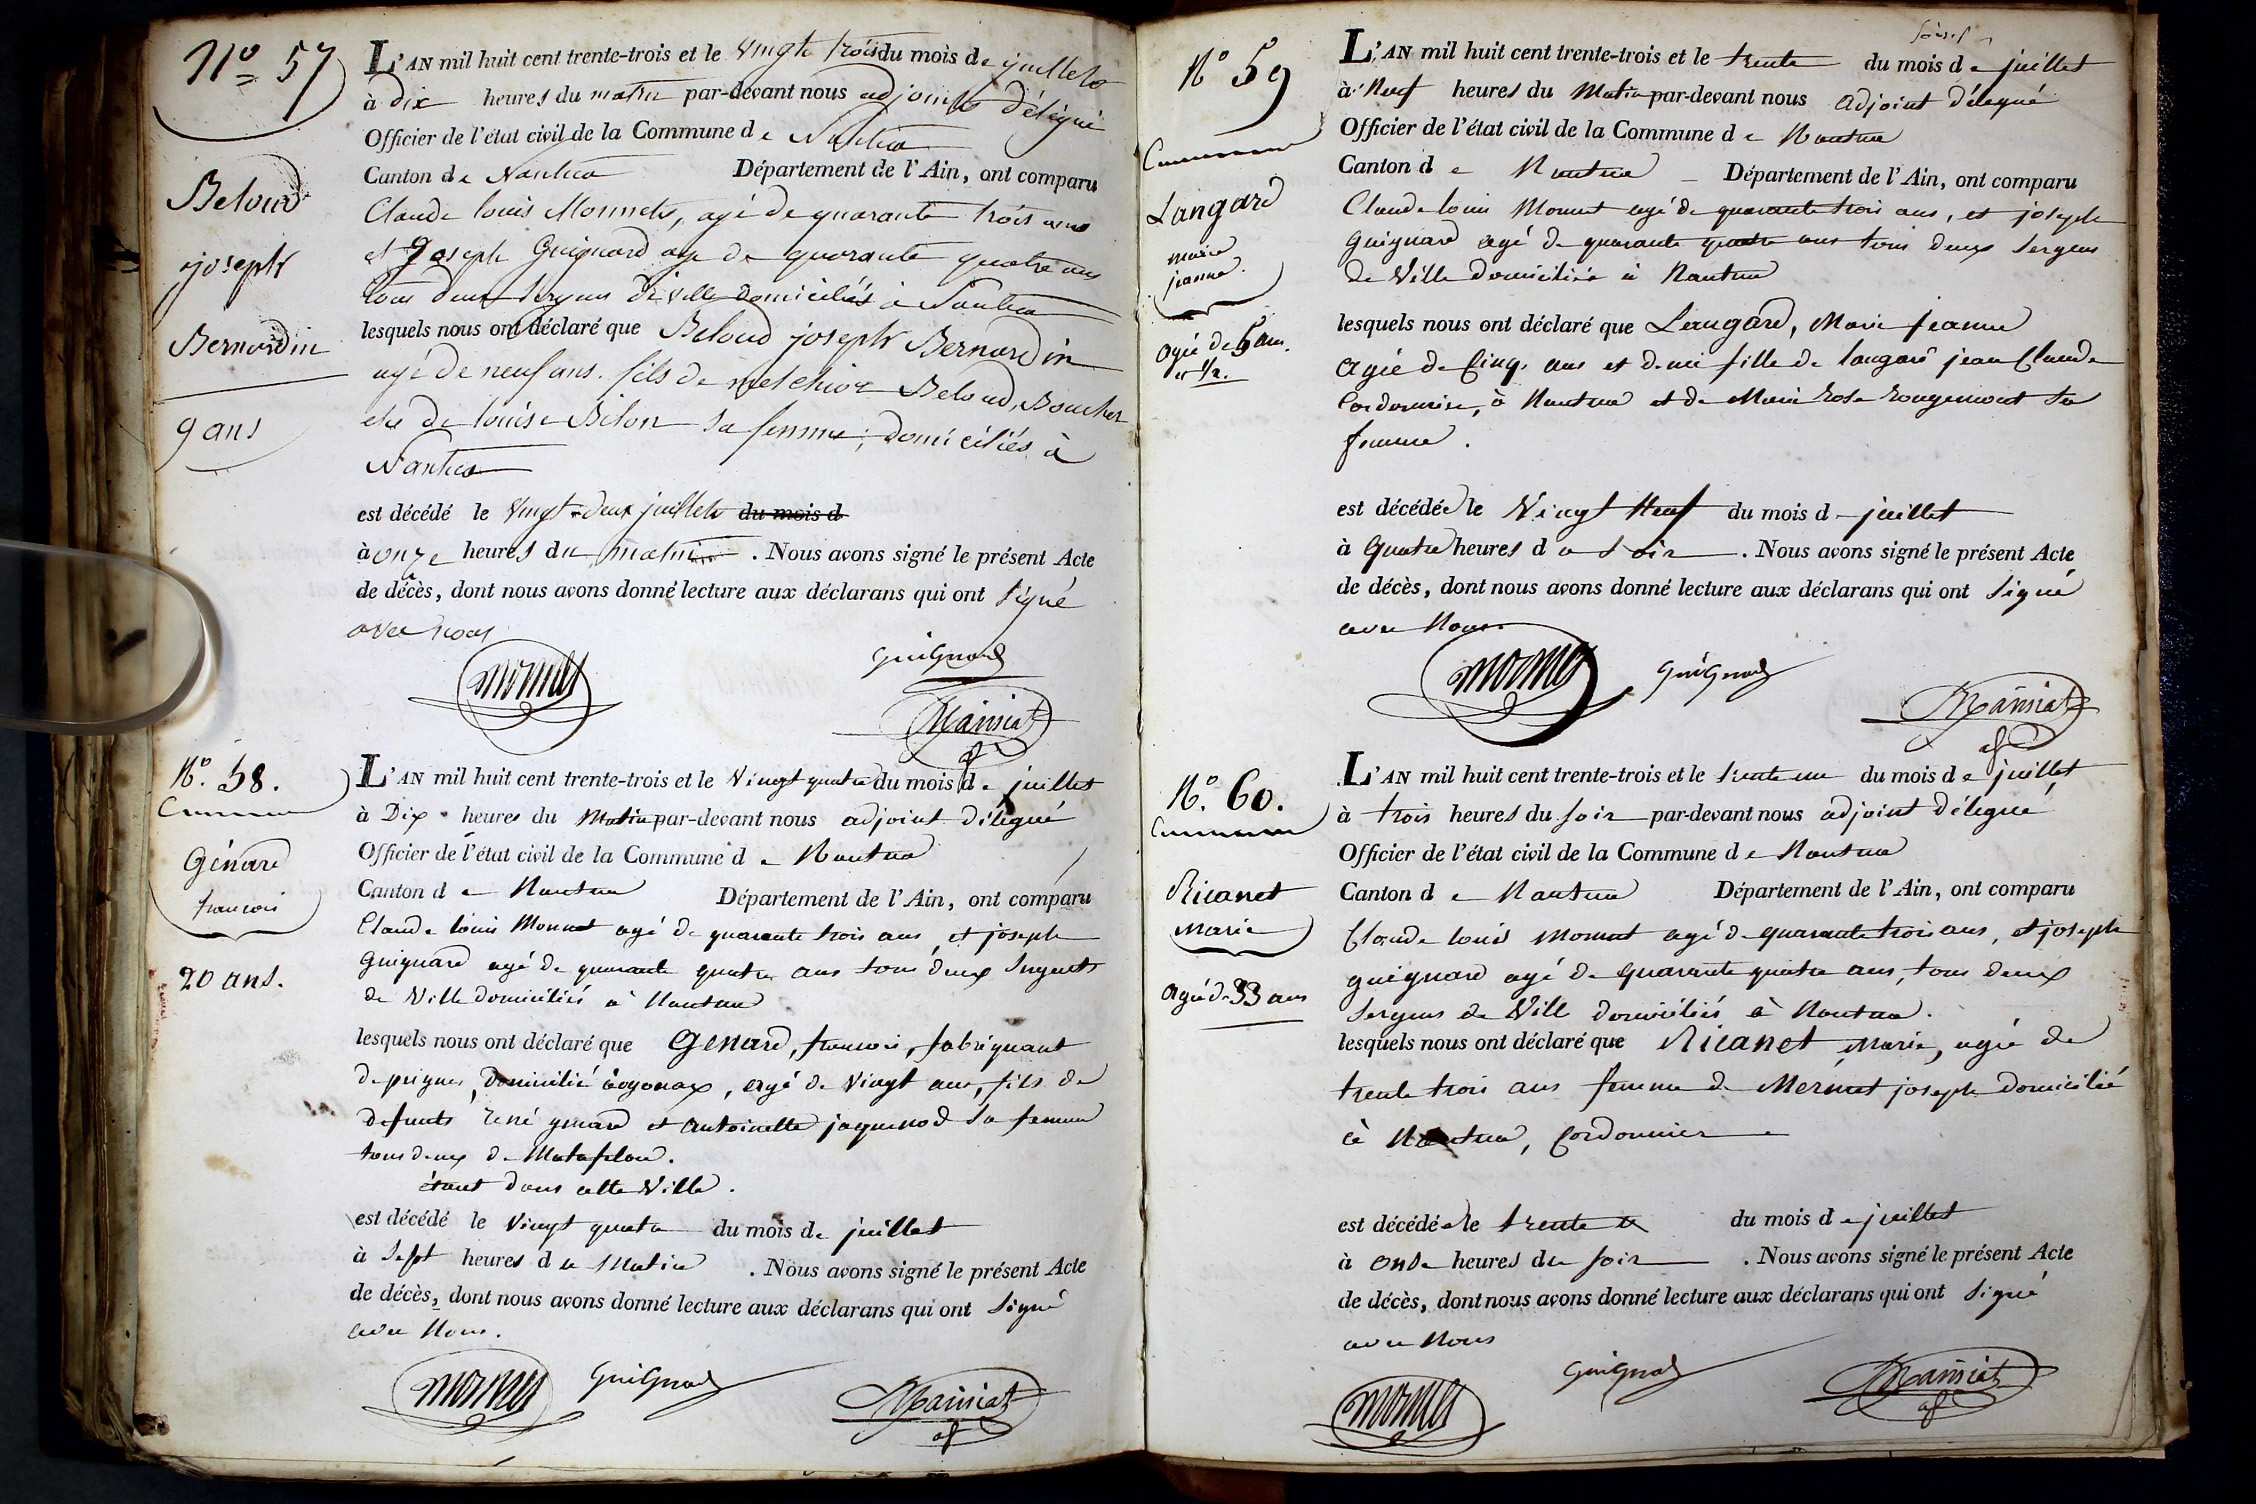 N° 57
Beloud
joseph
Bernardin
9 ans
L'AN mil huit cent trente-trois et le vingt trois du mois de juillet
à dix heures du matin par-devant nous adjoint délégué
Officier de l'état civil de la Commune de Nantua
Canton de Nantua Département de l'Ain, ont comparu
Claude louis Monnet, agé de quarante trois ans
et Joseph Guignard agé de quarante quatre ans
tous deux sergens de ville domiciliés à Nantua
lesquels nous ont déclaré que Beloud joseph Bernardin
agé de neuf ans. fils de melchior Beloud, Boucher
et de louise Bilon sa femme, domiciliés à
Nantua
est décédé le vingt-deux juillet du mois d
à onze heures du matin. Nous avons signé le présent Acte
de décès, dont nous avons donné lecture aux déclarans qui ont signé
avec nous
monnet
Guignard
Mainiat
N°. 58.
Commune
Génard
francois
20 ans.
L'AN mil huit cent trente-trois et le vingt quatre du mois de juillet
à Dix heures du Matin par-devant nous adjoint délégué
Officier de l'état civil de la Commune de Nantua
Canton de Nantua Département de l'Ain, ont comparu
Claude louis Monnet agé de quarante trois ans, et joseph
guignard agé de quarante quatre ans tous deux Sergents
de Ville domiciliés à Nantua
lesquels nous ont déclaré que Génard, francois, fabriquant
de peignes, domicilié à oyonax, agé de Vingt ans, fils de
defunts réné génard et antoinette jaquenod Sa femme
tous deux de Matafelon.
étant dans cette Ville.
est décédé le Vingt quatre du mois de juillet
à Sept heures du Matin. Nous avons signé le présent Acte
de décès, dont nous avons donné lecture aux déclarans qui ont Signé
avec Nous.
monnet
Guignard
Mainiat
N° 59
Commune
Langard
marie
jeanne
agée de 5 ans
et 1/2.
L'AN mil huit cent trente-trois et le trente du mois de juillet
à Neuf heures du Matin par-devant nous adjoint délegué
Officier de l'état civil de la Commune de Nantua
Canton de Nantua Département de l'Ain, ont comparu
Claude louis Monnet agé de quarante trois ans, et joseph
guignard agé de quarante quatre ans tous deux Sergens
de Ville domiciliés à Nantua
lesquels nous ont déclaré que Langard, Marie jeanne
agée de Cinq ans et demi fille de langard jean Claude
Cordonnier, à Nantua et de Marie Rose Rougemont Sa
femme.
est décédée le Vingt Neuf du mois de juillet
à Quatre heures du Soir. Nous avons signé le présent Acte
de décès, dont nous avons donné lecture aux déclarans qui ont Signé
avec Nous.
monnet
Guignard
Mainiat
N°. 60.
Commune
Ricanet
Marie
agée de 33 ans
L'AN mil huit cent trente-trois et le trente un du mois de juillet
à trois heures du soir par-devant nous adjoint délegué
Officier de l'état civil de la Commune de Nantua
Canton de Nantua Département de l'Ain, ont comparu
Claude louis Monnet agé de quarante trois ans, et joseph
guignard agé de quarante quatre ans, tous deux
Sergens de Ville domiciliés à Nantua.
lesquels nous ont déclaré que Ricanet Marie, agée de
trente trois ans femme de Mermet joseph domicilié
à Nantua, Cordonnier
est décédée le trente du mois de juillet
à onze heures du soir. Nous avons signé le présent Acte
de décès, dont nous avons donné lecture aux déclarans qui ont Signé
avec Nous
monnet
Guignard
Mainiat